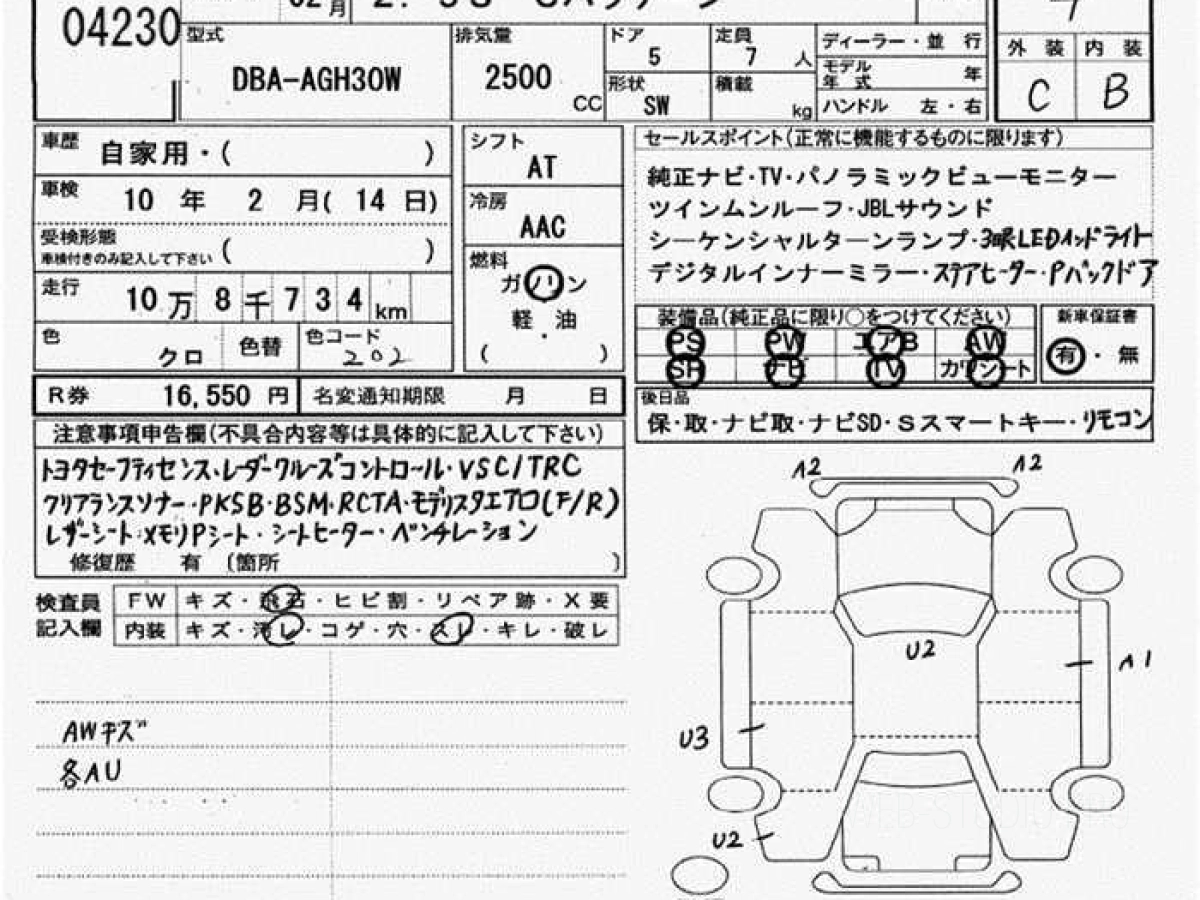 04230
月
型式 DBA-AGH30W
排気量 2500 CC
ドア 5
定員 7 人
形状 SW
積載 kg
ディーラー・並 行
モデル年式 年
ハンドル 左・右
外装 内装
C B
車歴 自家用・( )
車検 10 年 2 月( 14 日)
受検形態
車検付きのみ記入して下さい ( )
走行 10万 8千734km
色 クロ 色替 色コード 202
シフト AT
冷房 AAC
燃料 ガソリン
軽・油
( )
R券 16,550 円 名変通知期限 月 日
セールスポイント(正常に機能するものに限ります)
純正ナビ・TV・パノラミックビューモニター
ツインムンルーフ・JBLサウンド
シーケンシャルターンランプ・3眼LEDヘッドライト
デジタルインナーミラー・ステアヒーター・Pバックドア
装備品(純正品に限り○をつけてください) 新車保証書
PS PW エアB AW
SR ナビ TV カワシート
有・無
後日品
保・取・ナビ取・ナビSD・Sスマートキー・リモコン
注意事項申告欄(不具合内容等は具体的に記入して下さい)
トヨタセーフティセンス・レーダークルーズコントロール・VSC/TRC
クリアランスソナー・PKSB・BSM・RCTA・モデリスタエアロ(F/R)
レザーシート・メモリPシート・シートヒーター・ベンチレーション
修復歴 有 〔箇所 〕
検査員記入欄
FW キズ・飛石・ヒビ割・リペア跡・X要
内装 キズ・汚レ・コゲ・穴・スレ・キレ・破レ
AWキズ
各AU
A2 A2
U2
A1
U3
U2